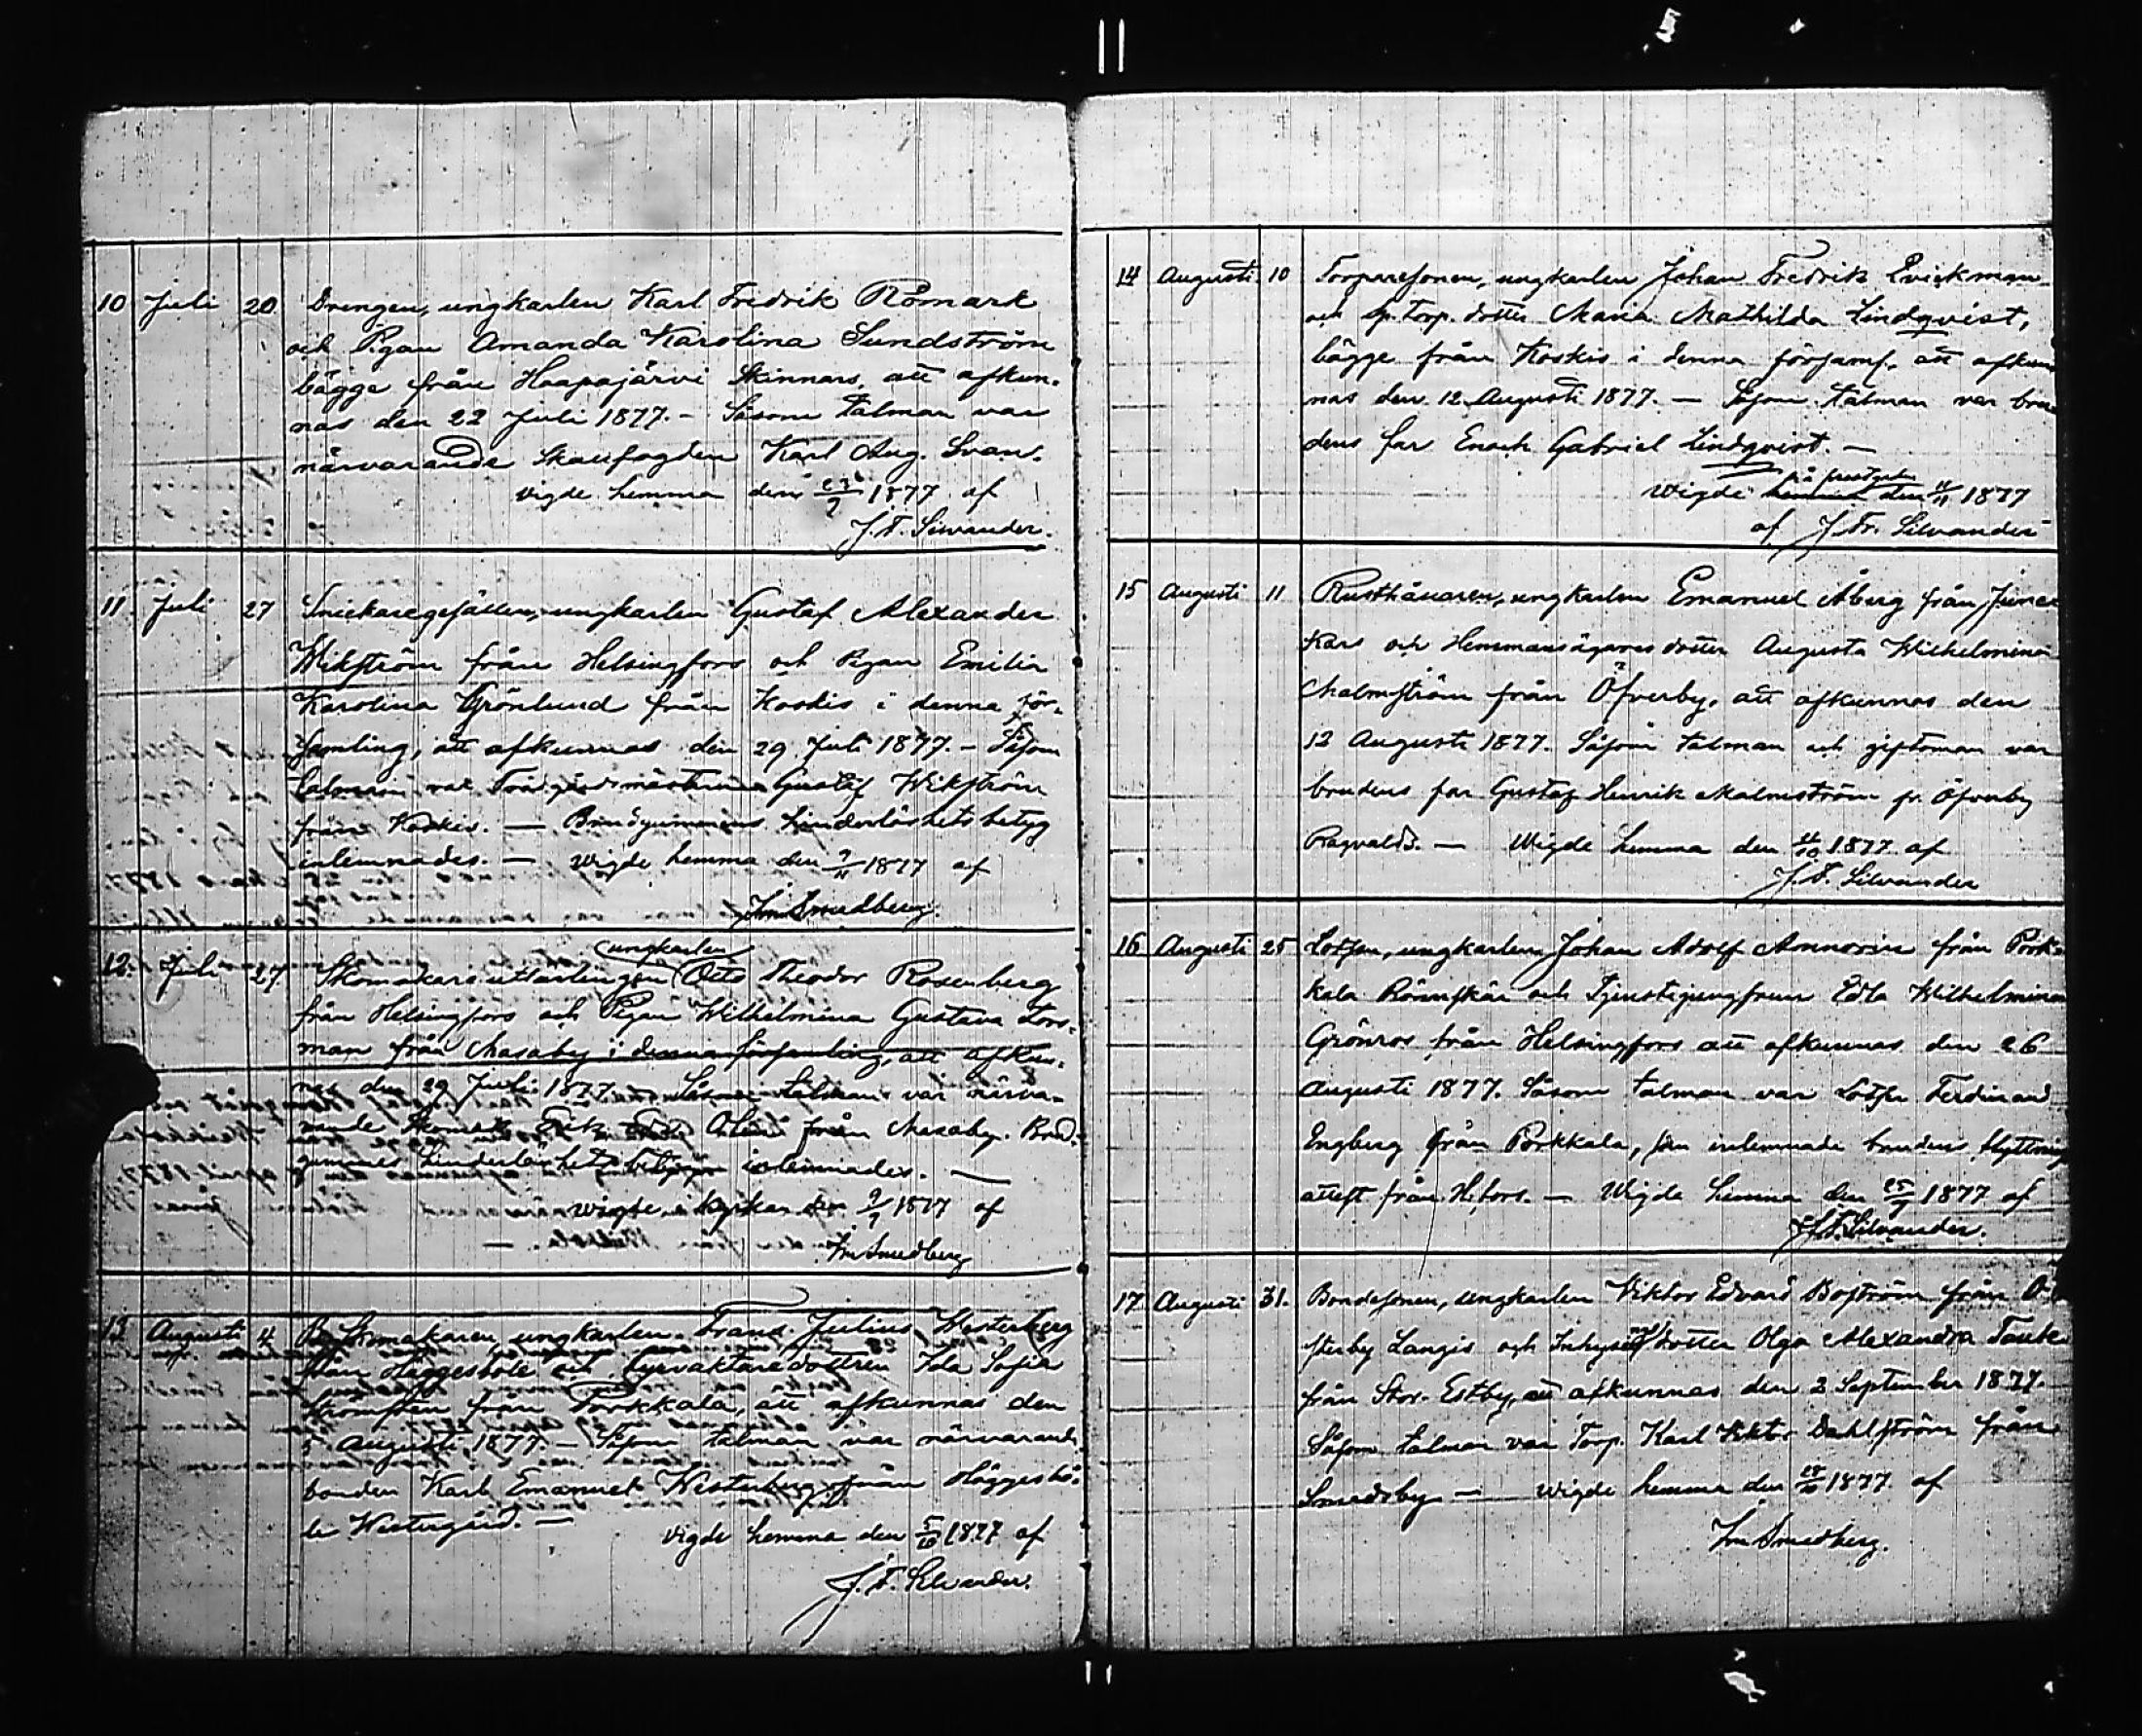 10 Juli 20 Drengen, ungkarlen Karl Fredrik Römark
och Pigan Amanda Karolina Sundström
bägge från Haapajärvi Skinnars, att afkun-
nas den 22 Juli 1877. - Såsom talman var
närvarande Skaufogden Karl Aug. Svan.
vigde hemma den 1877 af
J. F. Silvander.
11. Juli 27 Snickaregesällen, ungkarlen Gustaf Alexander
Wikström från Helsingfors och Pigan Emilia
Karolina Grönlund från Koskis i denna för-
samling, att afkunnas den 29 Juli 1877. - Såsom
talman var Trädgårdsmästaren Gustaf Wikström
från Koskis. — Brudgummens hinderlöshetsbetyg
inlemnades. — Wigde hemma den 1877 af
Smedberg.
ungkarlen
12. Juli 27. Skomakareutlärlingen Otto Theodor Rosenberg
från Helsingfors och Pigan Wilhelmina Gustava
man från Masaby i denna församling, att afkun-
nas den 29 Juli 1877. Såsom talman var närva-
rande Erik från Masaby. Brud-
gummens hinderlöshetsbetyg inlemnades. —
wigde i kyrkan den 1877 af
Smedberg
13 Augusti 4 Skomakaren, ungkarlen Frans Julius Westerberg
från Häggesböle och Fyrvaktaredottren Ida Sofia
från Porkkala, att afkunnas den
5 Augusti 1877. - Såsom talman var närvarande
bonden Karl Emanuel Westerberg från Häggesbö-
le Westergård. —
vigde hemma den 5/10 1877 af
J. F. Silvander.
14 Augusti 10 Torparesonen, ungkarlen Johan Fredrik Qvickman
och Sp. Torp. dotter Maria Mathilda Lindqvist,
bägge från Koskis i denna församl. att afkun
nas den 12 Augusti 1877. — Såsom talman var bru-
dens far Enoch Gabriel Lindqvist. —
på prestgn
Wigde hemma den 1877
af J. Fr. Silvander
15 Augusti 11 Rusthållaren, ungkarlen Emanuel Åberg från
kars och Hemmansägaresdotter Augusta Wilhelmina
Malmström från Öfverby, att afkunnas den
12 Augusti 1877. Såsom talman och giftoman var
brudens far Gustaf Henrik Malmström fr. Öfverby
Ragvalds. — Wigde hemma den 1877 af
J. F. Silvander
16 Augusti 25 Lotsen, ungkarlen Johan Adolf från Pork-
kala Rönnskär och Tjenstejungfrun Edla Wilhelmina
Grönros från Helsingfors att afkunnas den 26
Augusti 1877. Såsom talman var Lotsen Ferdinand
Engberg från Porkkala, som inlemnade brudens flyttnings
attest från H:fors. — Wigde hemma den 1877 af
J. F. Silvander.
17 Augusti 31. Bondesonen, ungkarlen Viktor Edvard Boström från
sterby Langis och dotter Olga Alexandra
från Stor-Estby, att afkunnas den 2 September 1877.
Såsom talman var Torp. Karl Viktor Dahlström från
Smedsby — Wigde hemma den 1877 af
Smedberg.